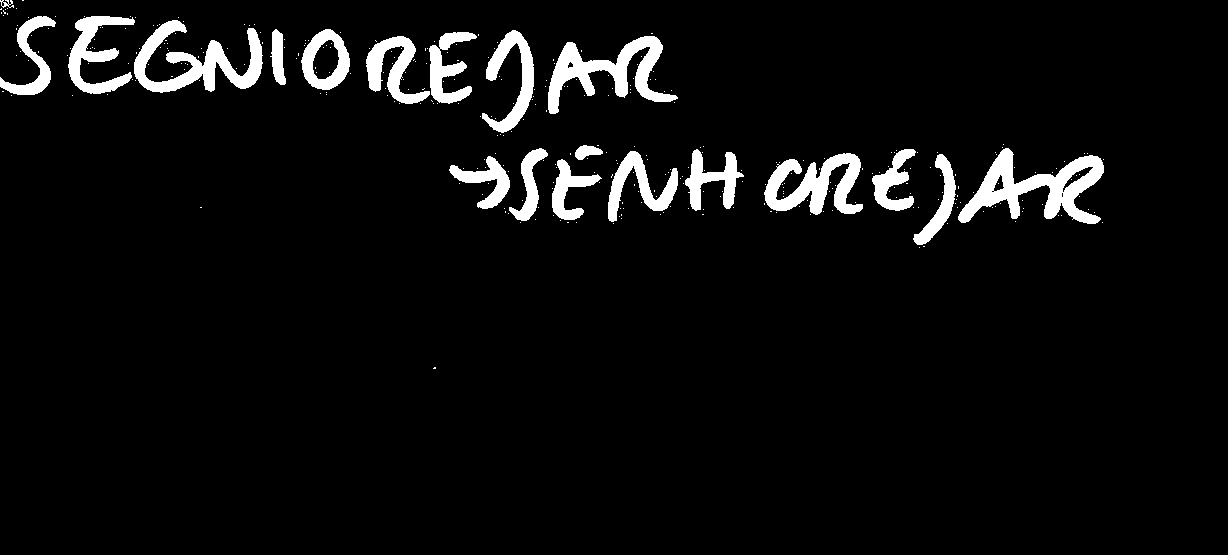 SEGNIOREJAR
→SENHOREJAR